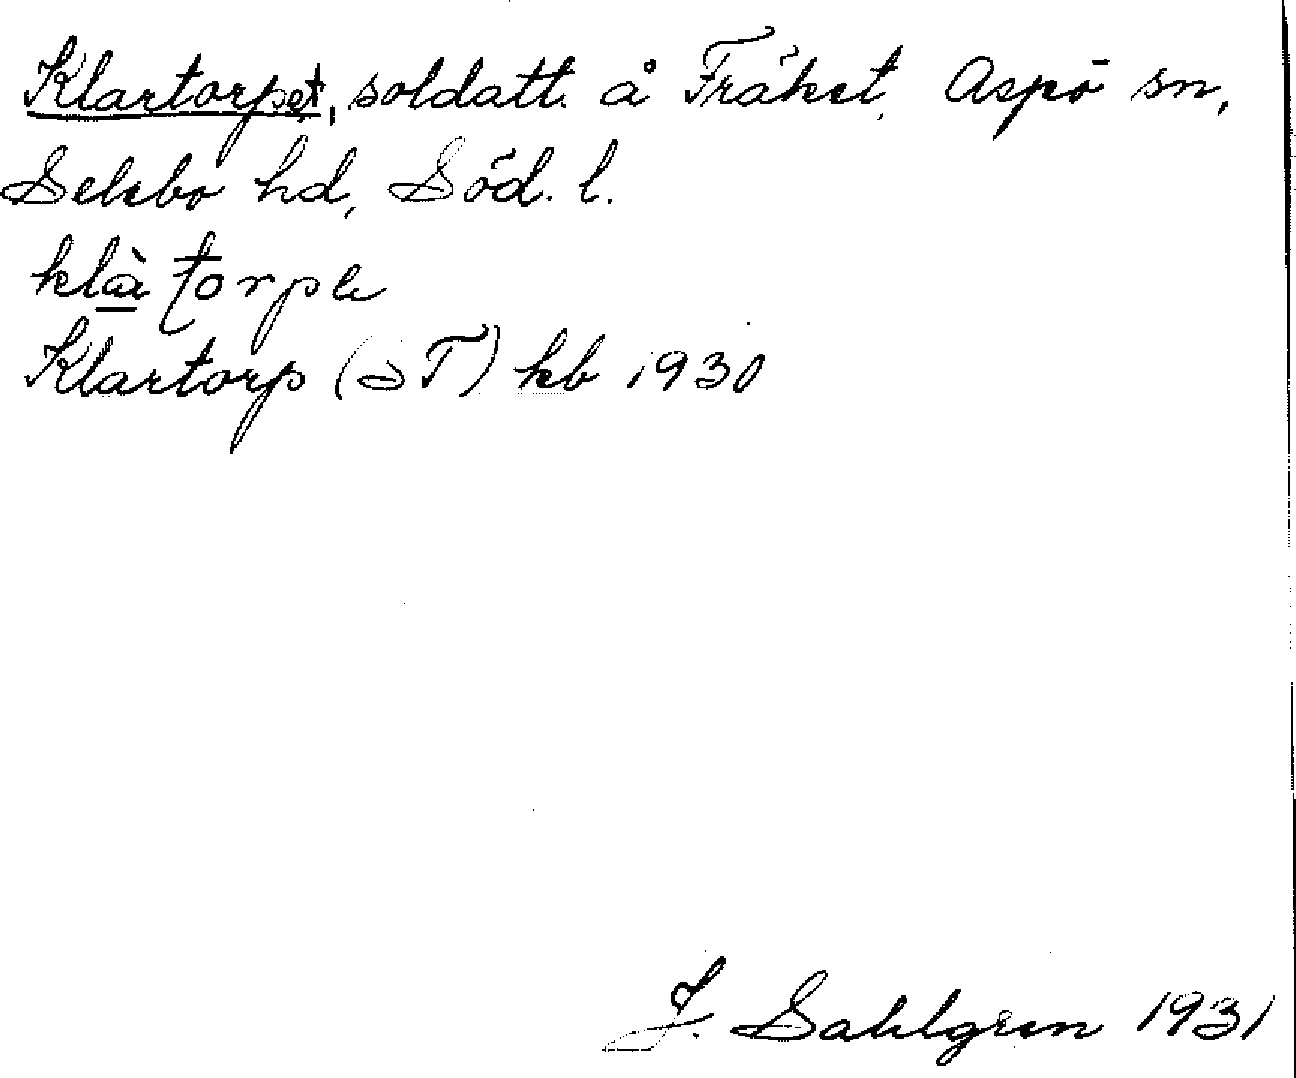 Klartorpet, soldatt. å Fräket, Aspö sn,
Selebo hd, Söd. l.
klà torple
Klartorp (ST) kb 1930
J. Sahlgren 1931